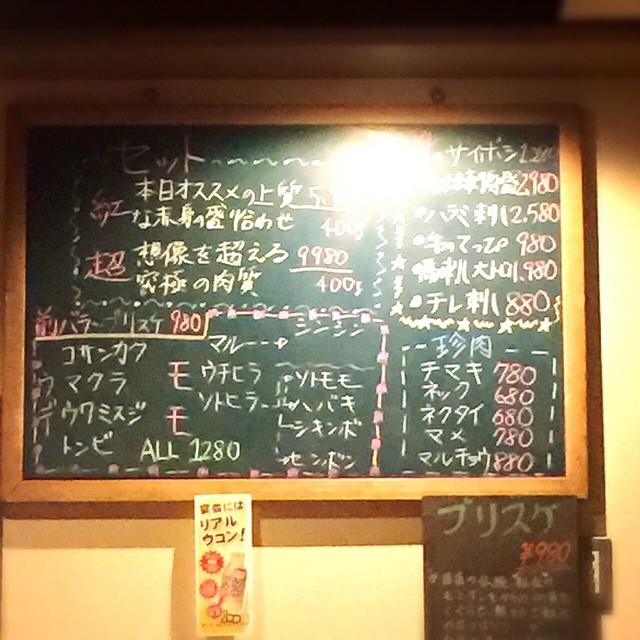 セット
紅 本日オススメの上質
な赤身の盛り合わせ 400g
超 想像を超える 9980
究極の肉質 400g
サイボシ
2,980
ハラミ刺し 2,580
980
1,980
チレ刺し 880
前バラ ブリスケ 980
コサンカク
マクラ
ウワミスジ
トンビ
ウデ
モモ
シンシン
マル
ウチヒラ
ソトヒラ
ソトモモ
ハバキ
シキンボ
センボン
ALL 1280
珍肉
チマキ 780
ネック 680
ネクタイ 680
マメ 780
マルチョウ 880
宴会には
リアル
ウコン!
ブリスケ
¥980